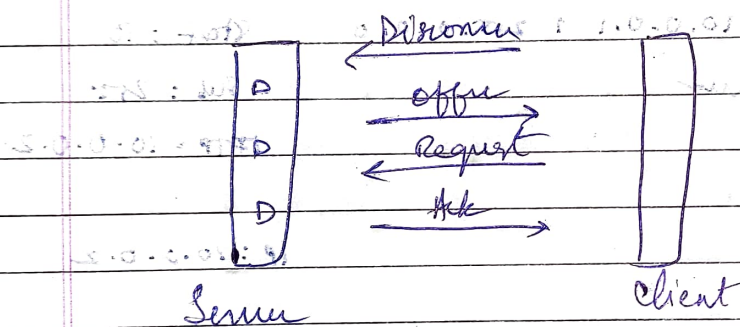 Discover
D
Offer
D
Request
D
Ack
Server
Client